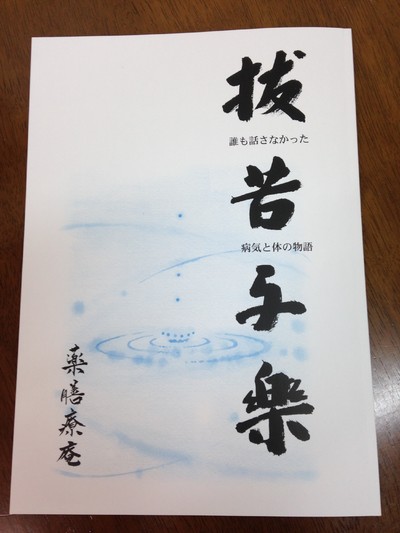 抜苦与楽
誰も話さなかった
病気と体の物語
薬膳療庵